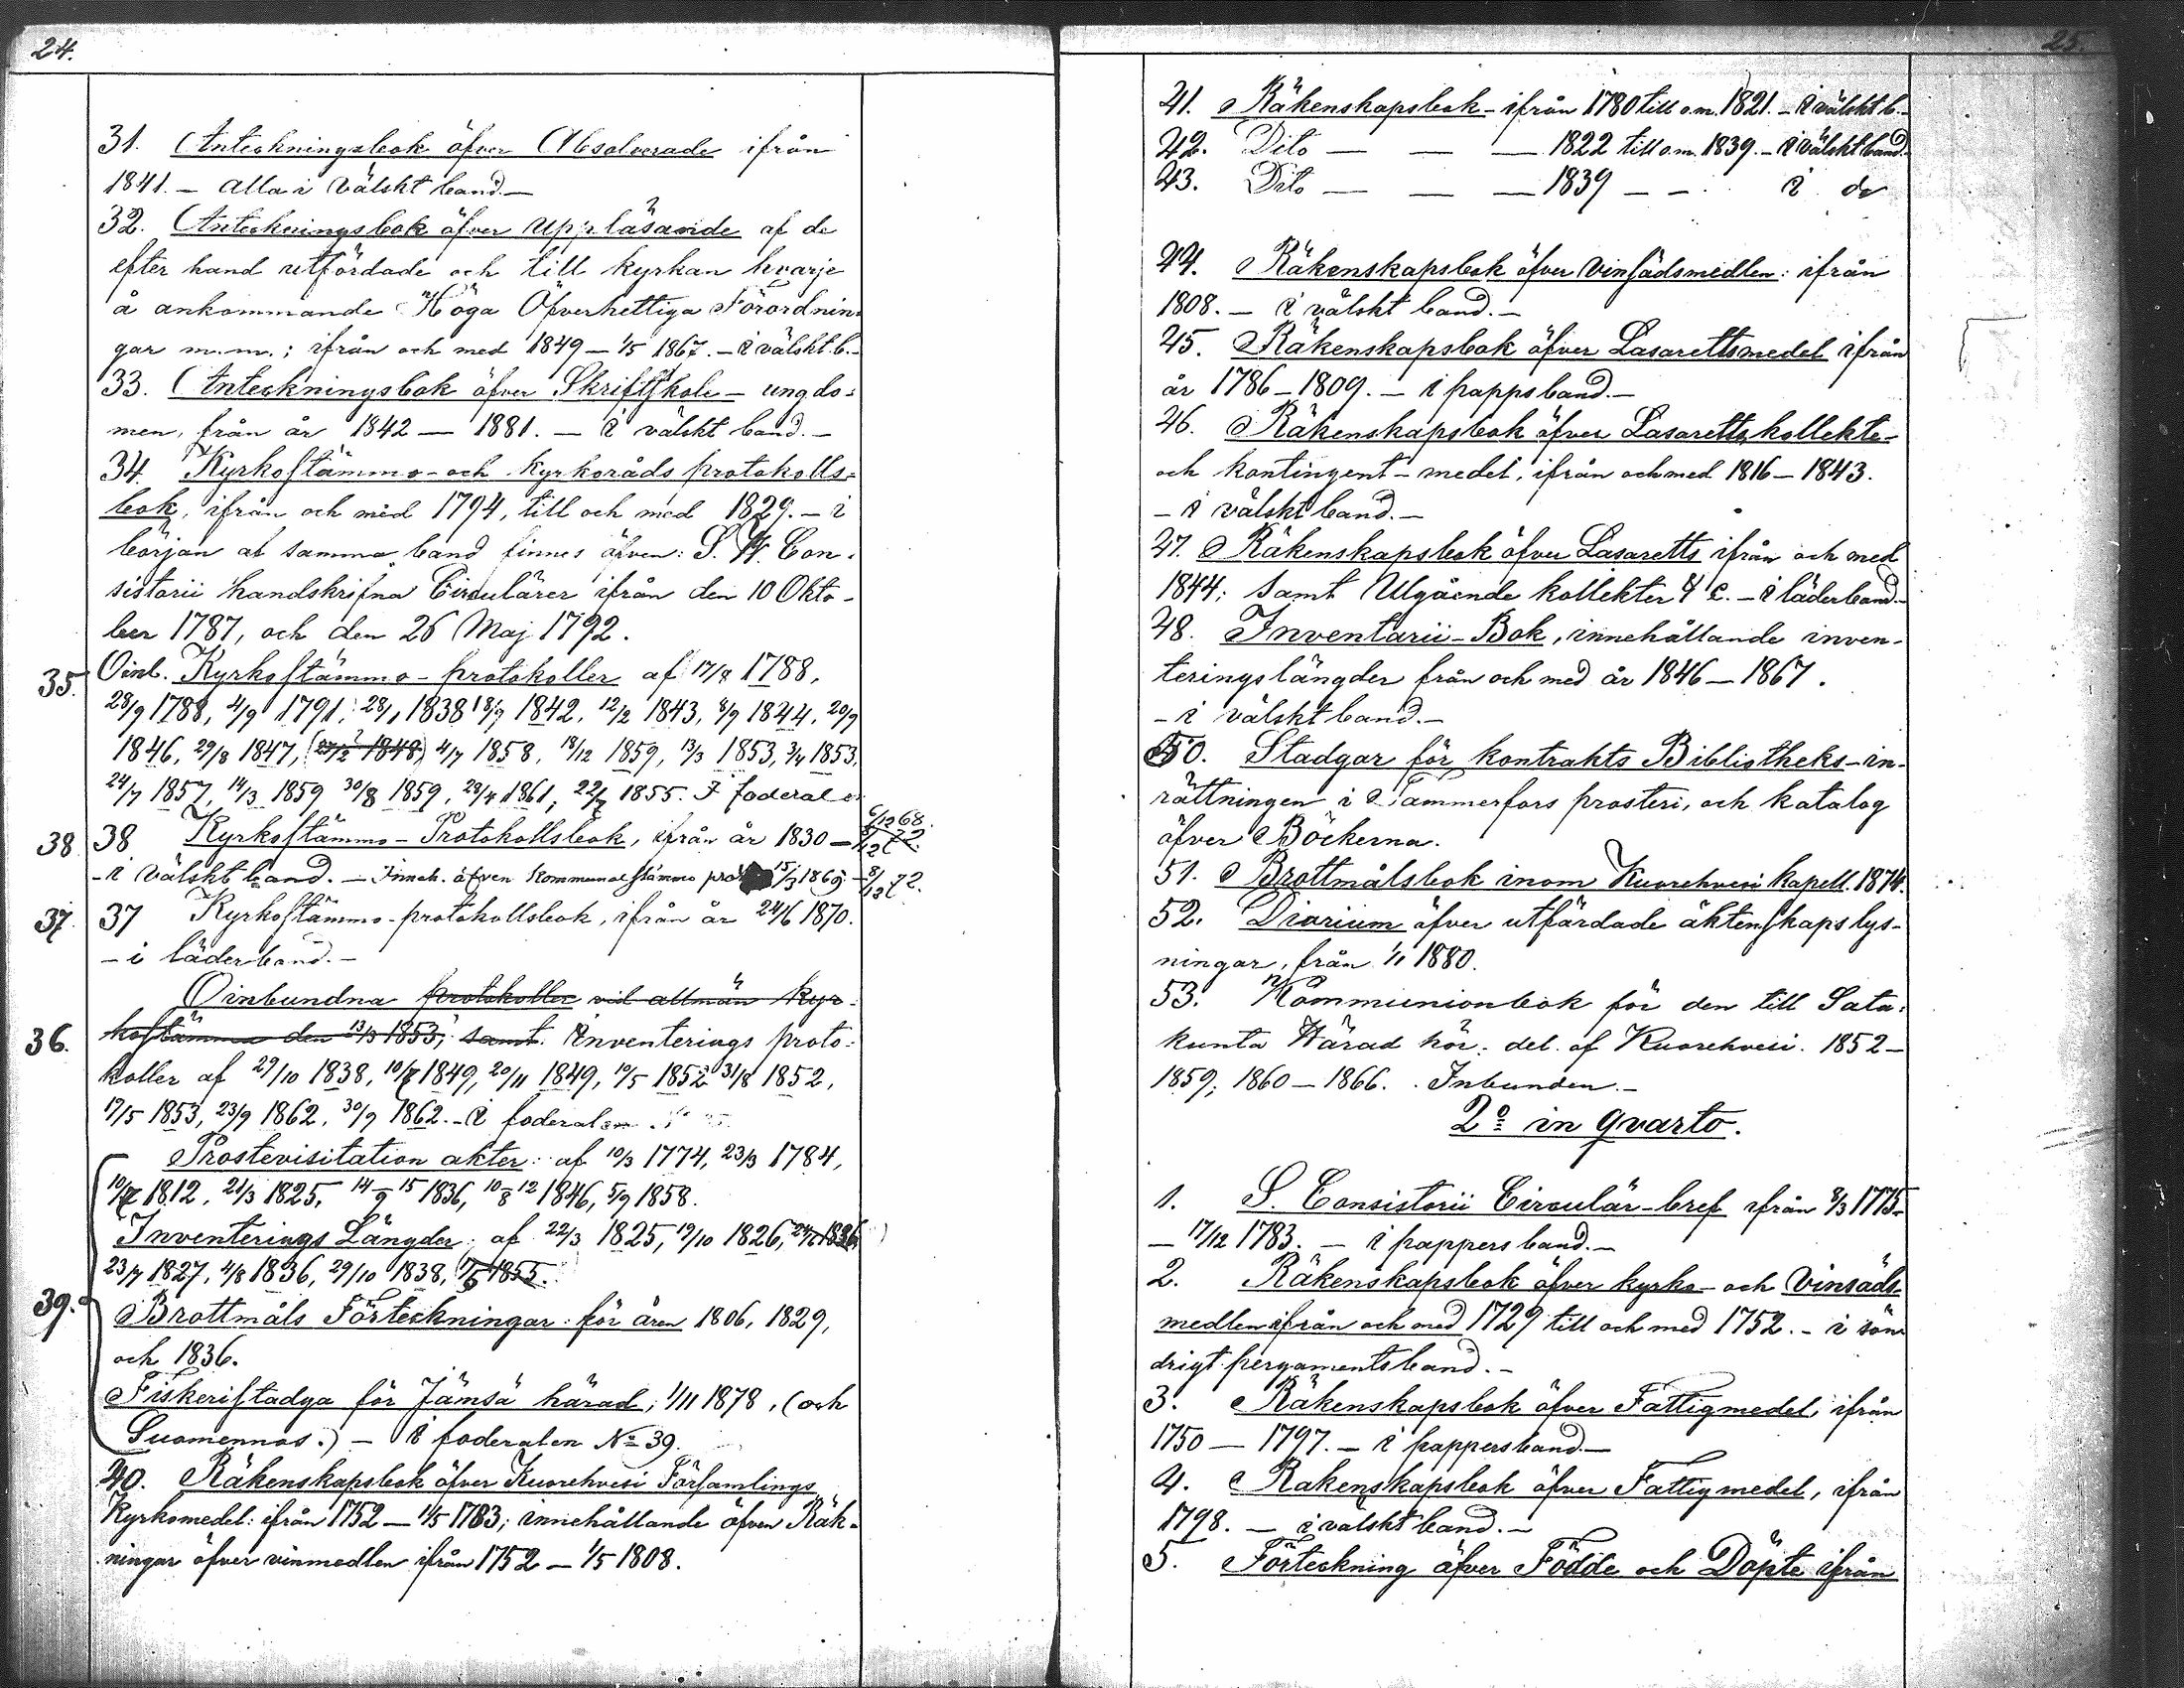 24.
31. Anteckningsbok öfver Absolverade ifrån
1841. – alla i välskt band. –
32. Anteckningsbok öfver uppläsande af de
efter hand utfördade och till kyrkan hvarje
å ankommande Höga Öfverhettiga Förordnin-
gar m.m.; ifrån och med 1849 – 1/5 1867. – i välskt b. –
33. Anteckningsbok öfver Skriftskole – ungdo-
men, från år 1842 – 1881. – i välskt band. –
34. Kyrkostämmo- och kyrkoråds protokolls-
bok, ifrån och med 1794, till och med 1829. – i
början af samma band finnes öfven: S. W. Con-
sistorii handskrifna Circulärer ifrån den 10 Okto-
ber 1787, och den 26 Maj 1792.
35. Oinb. Kyrkostämmo-protokoller af 17/8 1788,
28/9 1788, 4/9 1791, 28/1 1838 18/9 1842, 12/2 1843, 8/9 1844, 20/9
1846, 29/8 1847, (23/2 1848) 4/7 1858, 18/12 1859, 13/3 1853, 3/4 1853,
24/7 1857, 14/3 1859 30/8 1859, 28/4 1861, 22/7 1855. I foderal
6/12 68.
38 38 Kyrkostämmo-Protokollsbok, ifrån år 1830 – 8/12 72.
– i välskt band. – Inneh. öfven Kommunalstämmo 15/3 1869 – 8/12 72.
37. 37 Kyrkostämmo-protokollsbok, ifrån år 24/6 1870.
– i läderband. –
Oinbundna protokoller vid allmän kyr-
36. kostämma den 13/3 1853, samt. Inventerings proto-
koller af 29/10 1838, 10/7 1849, 20/11 1849, 10/5 1852 31/8 1852,
17/5 1853, 23/9 1862, 30/9 1862. – i foderalen
Prostevisitation akter: af 10/3 1774, 23/3 1784,
10/7 1812, 21/3 1825, 14–15/9 1836, 10–12/8 1846, 5/9 1858.
Inventerings Längder: af 22/3 1825, 19/10 1826, 1836
23/7 1827, 4/8 1836, 29/10 1838, 17/5 1855.
39. Brottmåls Förteckningar: för åren 1806, 1829,
och 1836.
Fiskeristadga för Jämsä härad, 1/11 1878, (och
Suomennos.) – i foderalen No 39.
40. Räkenskapsbok öfver Kuorehvesi Församlings
Kyrkomedel: ifrån 1752 – 1/5 1783; innehållande öfven Räk-
ningar öfver vinmedlen ifrån 1752 – 1/5 1808.
25.
41. Räkenskapsbok – ifrån 1780 till o.m. 1821. – i välskt b. –
42. Dito – – – 1822 till o.m. 1839. – i välskt band.
43. Dito – – – 1839 – – i do
44. Räkenskapsbok öfver Vinsädsmedlen: ifrån
1808. – i välskt band. –
45. Räkenskapsbok öfver Lasarettsmedel ifrån
år 1786 – 1809. – i pappsband. –
46. Räkenskapsbok öfver Lasaretts kollekte-
och kontingent-medel, ifrån och med 1816 – 1843.
– i välskt band. –
47. Räkenskapsbok öfver Lasaretts ifrån och med
1844; samt Utgående kollekter & c. – i läderband. –
48. Inventarii-Bok, innehållande inven-
teringslängder från och med år 1846 – 1867.
– i välskt band. –
50. Stadgar för kontrakts Bibliotheks-in-
rättningen i Tammerfors prosteri, och katalog
öfver Böckerna.
51. Brottmålsbok inom Kuorehvesi Kapell. 1874.
52. Diarium öfver utfärdade äktenskaps lys-
ningar, från 1/1 1880.
53. Kommunionbok för den till Sata-
kunta Härad hör. del. af Kuorehvesi. 1852 –
1859; 1860 – 1866. Inbunden. –
2o in qvarto.
1. S. Consistorii Circulär-bref ifrån 8/3 1775 –
– 17/12 1783. – i pappers band. –
2. Räkenskapsbok öfver kyrko- och Vinsäds-
medlen ifrån och med 1729 till och med 1752. – i sön-
drigt pergamentsband. –
3. Räkenskapsbok öfver Fattigmedel, ifrån
1750 – 1797. – i pappersband –
4. Räkenskapsbok öfver Fattigmedel, ifrån
1798. – i välskt band. –
5. Förteckning öfver Födde och Döpte ifrån